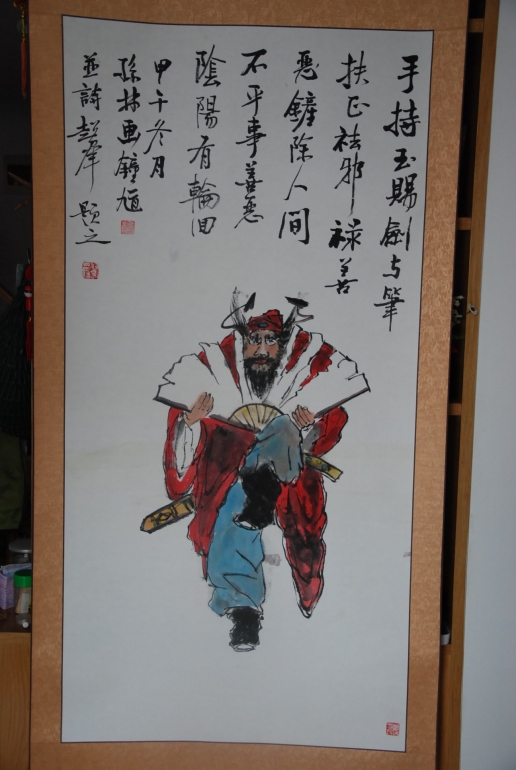 手持玉赐剑与笔
扶正祛邪禄善
恶铲除人间
不平事善恶
陰陽有輪回
甲午冬月
孫林画鍾馗
並詩 题之